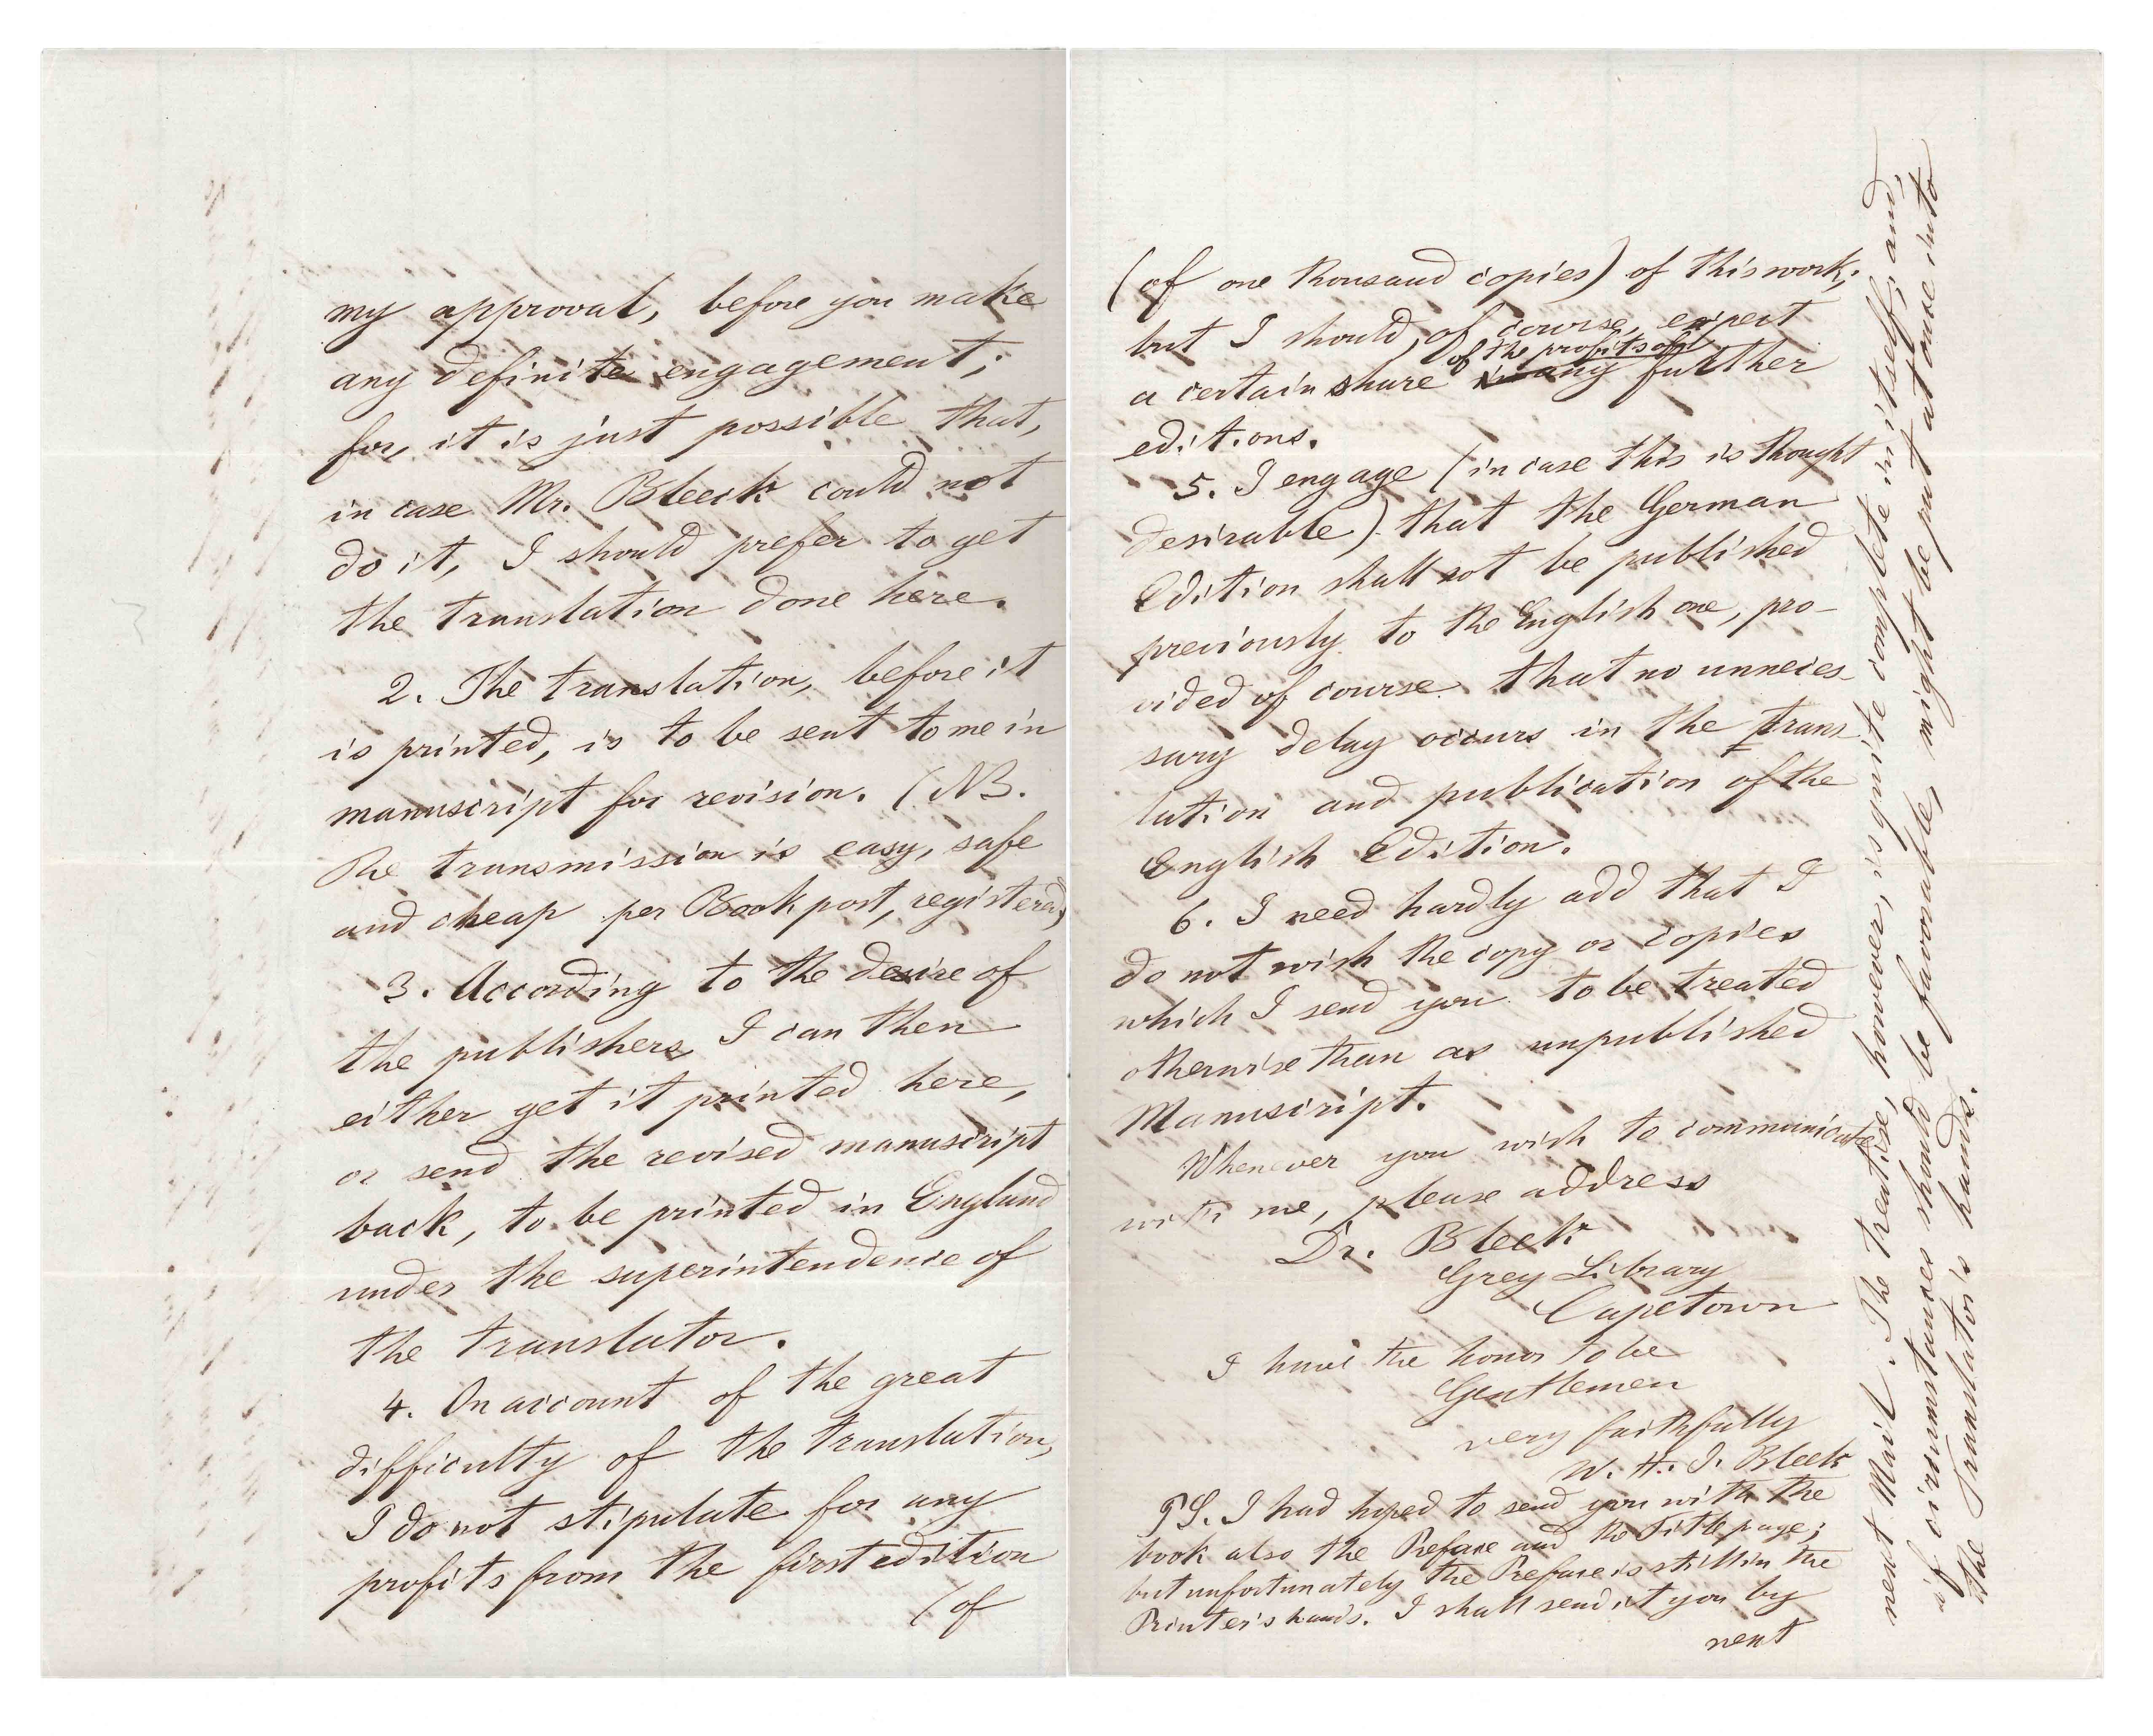 my approval, before you make
any definite engagement;
for, it is just possible that,
in case Mr. Bleek could not
do it, I should prefer to get
the translation done here.
2. The translation, before it
is printed, is to be sent to me in
manuscript for revision. (NB.
The transmission is easy, safe
and cheap per Bookpost, registered)
3. According to the desire of
the publishers, I can then
either get it printed here,
or send the revised manuscript
back, to be printed in England
under the superintendence of
the translator.
4. On account of the great
difficulty of the translation,
I do not stipulate for any
profits from the first edition
(of
(of one thousand copies) of this work;
but I should, of course, expect
of the profits of
a certain share in any further
editions.
5. I engage (in case this is thought
desirable) that the German
Edition shall not be published
previously to the English one, pro-
vided of course that no unneces-
sary delay occurs in the trans-
lation and publication of the
English Edition.
6. I need hardly add that I
do not wish the copy or copies
which I send you to be treated
otherwise than as unpublished
Manuscript.
Whenever you wish to communicate
with me, please address
Dr. Bleek
Grey Library
Capetown
I have the honor to be
Gentlemen
very faithfully
W. H. I. Bleek
PS. I had hoped to send you with the
book also the Preface and the Title page;
but unfortunately the Preface is still in the
Printer's hands. I shall send it you by
next
next Mail. The treatise, however, is quite complete in itself, and,
if circumstances should be favorable, might be put at once into
the Translator's hands.